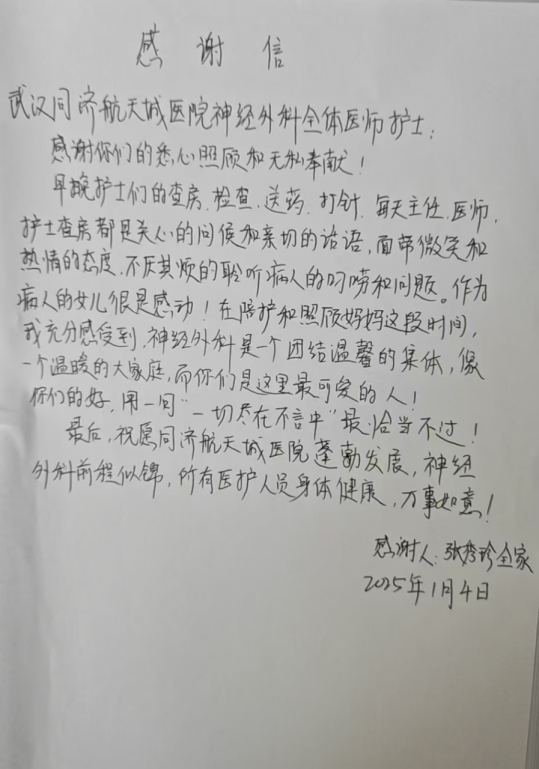 感谢信
武汉同济航天城医院神经外科全体医师护士:
感谢你们的悉心照顾和无私奉献!
早晚护士们的查房、检查、送药、打针、每天主任、医师,
护士查房都是关心的问候和亲切的话语,面带微笑和
热情的态度,不厌其烦的聆听病人的叨唠和问题。作为
病人的女儿很是感动!在陪护和照顾妈妈这段时间,
我充分感受到,神经外科是一个团结温馨的集体,像
一个温暖的大家庭,而你们是这里最可爱的人!
你们的好,用一句"一切尽在不言中"最恰当不过!
最后,祝愿同济航天城医院蓬勃发展,神经
外科前程似锦,所有医护人员身体健康,万事如意!
感谢人:张秀珍全家
2025年1月4日